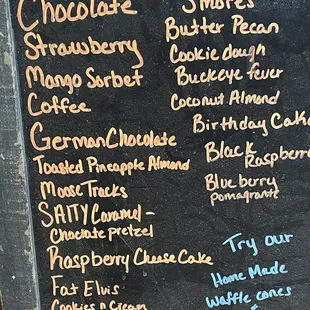 Chocolate
Strawberry
Mango Sorbet
Coffee
German Chocolate
Toasted Pineapple Almond
Moose Tracks
SAlTY Caramel -
Chocolate pretzel
Raspberry Cheese Cake
Fat Elvis
Cookies n Cream
S'mores
Butter Pecan
Cookie dough
Buckeye fever
Coconut Almond
Birthday Cake
Black Raspberry
Blueberry
pomagranite
Try our
Home Made
Waffle cones